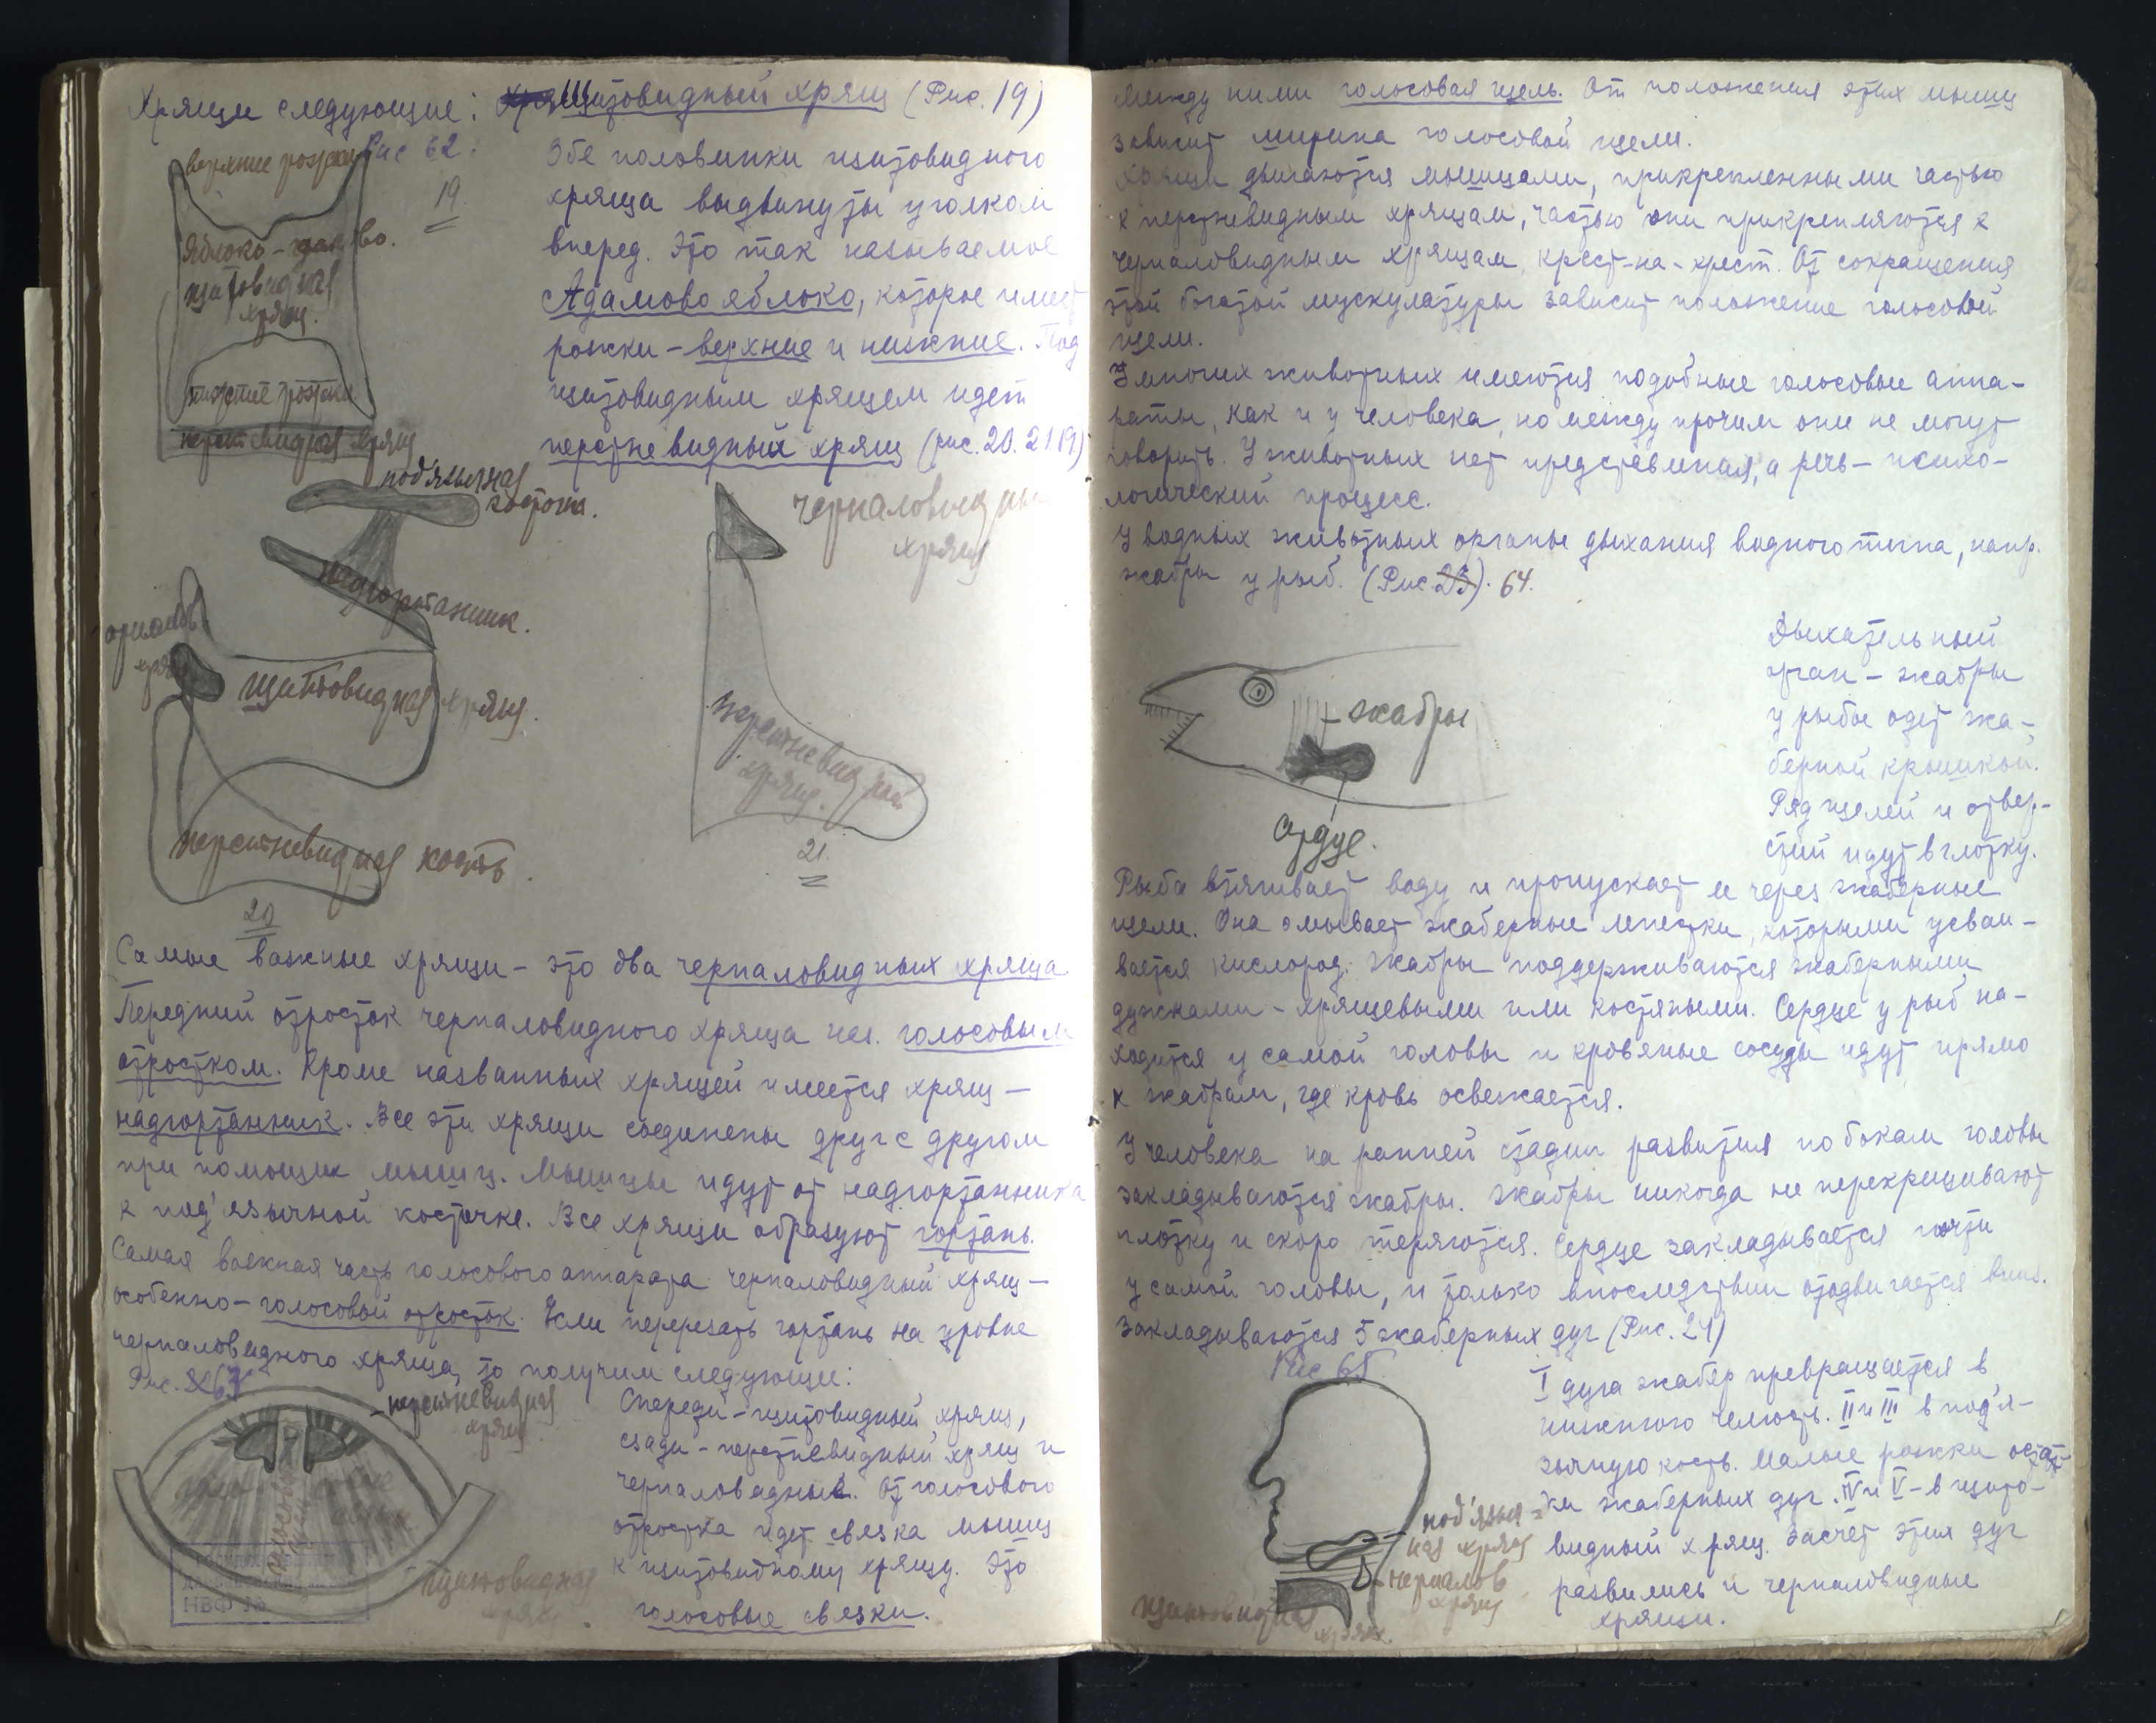 Хрящи следующие: Щитовидный хрящ (Рис. 19)
верхние рожки Рис 62.
19.
Обе половинки щитовидного
хряща выдвинуты уголком
вперед. Это так называемое
Адамово яблоко, которое имеет
рожки – верхние и нижние. Под
щитовидным хрящем идет
перстневидный хрящ (рис. 20. 21. 19)
Яблоко-
щитовидная
хрящ.
нижние рожки
хрящ
под'язычная
косточка.
надгортаник.
хрящ
щитовидная хрящ.
перстневидная кость.
20
черпаловидный
хрящ
перстневидный
хрящ.
21.
Самые важные хрящи – это два черпаловидных хряща
Передний отросток черпаловидного хряща наз. голосовым
отростком. Кроме названных хрящей имеется хрящ –
надгортанник. Все эти хрящи соединены друг с другом
при помощи мышц. Мышцы идут от надгортанника
к под'язычной косточке. Все хрящи образуют гортань.
Самая важная часть голосового аппарата черпаловидный хрящ –
особенно – голосовой отросток. Если перерезать гортань на уровне
черпаловидного хряща, то получим следующи:
Рис.
перстневидная
хрящ
Спереди – щитовидный хрящ,
сзади – перстневидный хрящ и
черпаловидные. От голосового
отростка идет связка мышц
к щитовидному хрящу. Это
голосовые связки.
щитовидная
хрящ.
НВФ №
Между ними голосовая щель. От положения этих мышц
зависит ширина голосовой щели.
Хрящи двигаются мышцами, прикрепленными частью
к перстневидным хрящам, частью они прикрепляются к
черпаловидным хрящам крест-на-крест. От сокращения
этой богатой мускулатуры зависит положение голосовой
щели.
У многих животных имеются подобные голосовые аппа-
раты, как и у человека, но между прочим они не могут
говорить. У животных нет представления, а речь – психо-
логический процесс.
У водных животных органы дыхания водного типа, напр.
жабры у рыб. (Рис 23). 64.
Дыхательный
орган – жабры
у рыбы одет жа-
берной крышкой.
Ряд щелей и отвер-
стий идут в глотку.
жабры
сердце.
Рыба втягивает воду и пропускает ее через жаберные
щели. Она омывает жаберные лепестки, которыми усваи-
вается кислород. Жабры поддерживаются жаберными
дужками – хрящевыми или костяными. Сердце у рыб на-
ходится у самой головы и кров'яные сосуды идут прямо
к жабрам, где кровь освежается.
У человека на ранней стадии развития по бокам головы
закладываются жабры. Жабры никогда не перекрещивают
глотку и скоро теряются. Сердце закладывается почти
у самой головы, и только впоследствии отодвигается вниз.
Закладываются 5 жаберных дуг (Рис. 24)
Рис 65
I дуга жабер превращается в
нижнюю челюсть. II и III в под'я-
зычную кость. Малые рожки остат-
ки жаберных дуг. IV и V – в щито-
видный хрящ. Засчет этих дуг
развились и черпаловидные
хрящи.
под'языч-
ная хрящ
черпалов
хрящ
щитовидная
хрящ